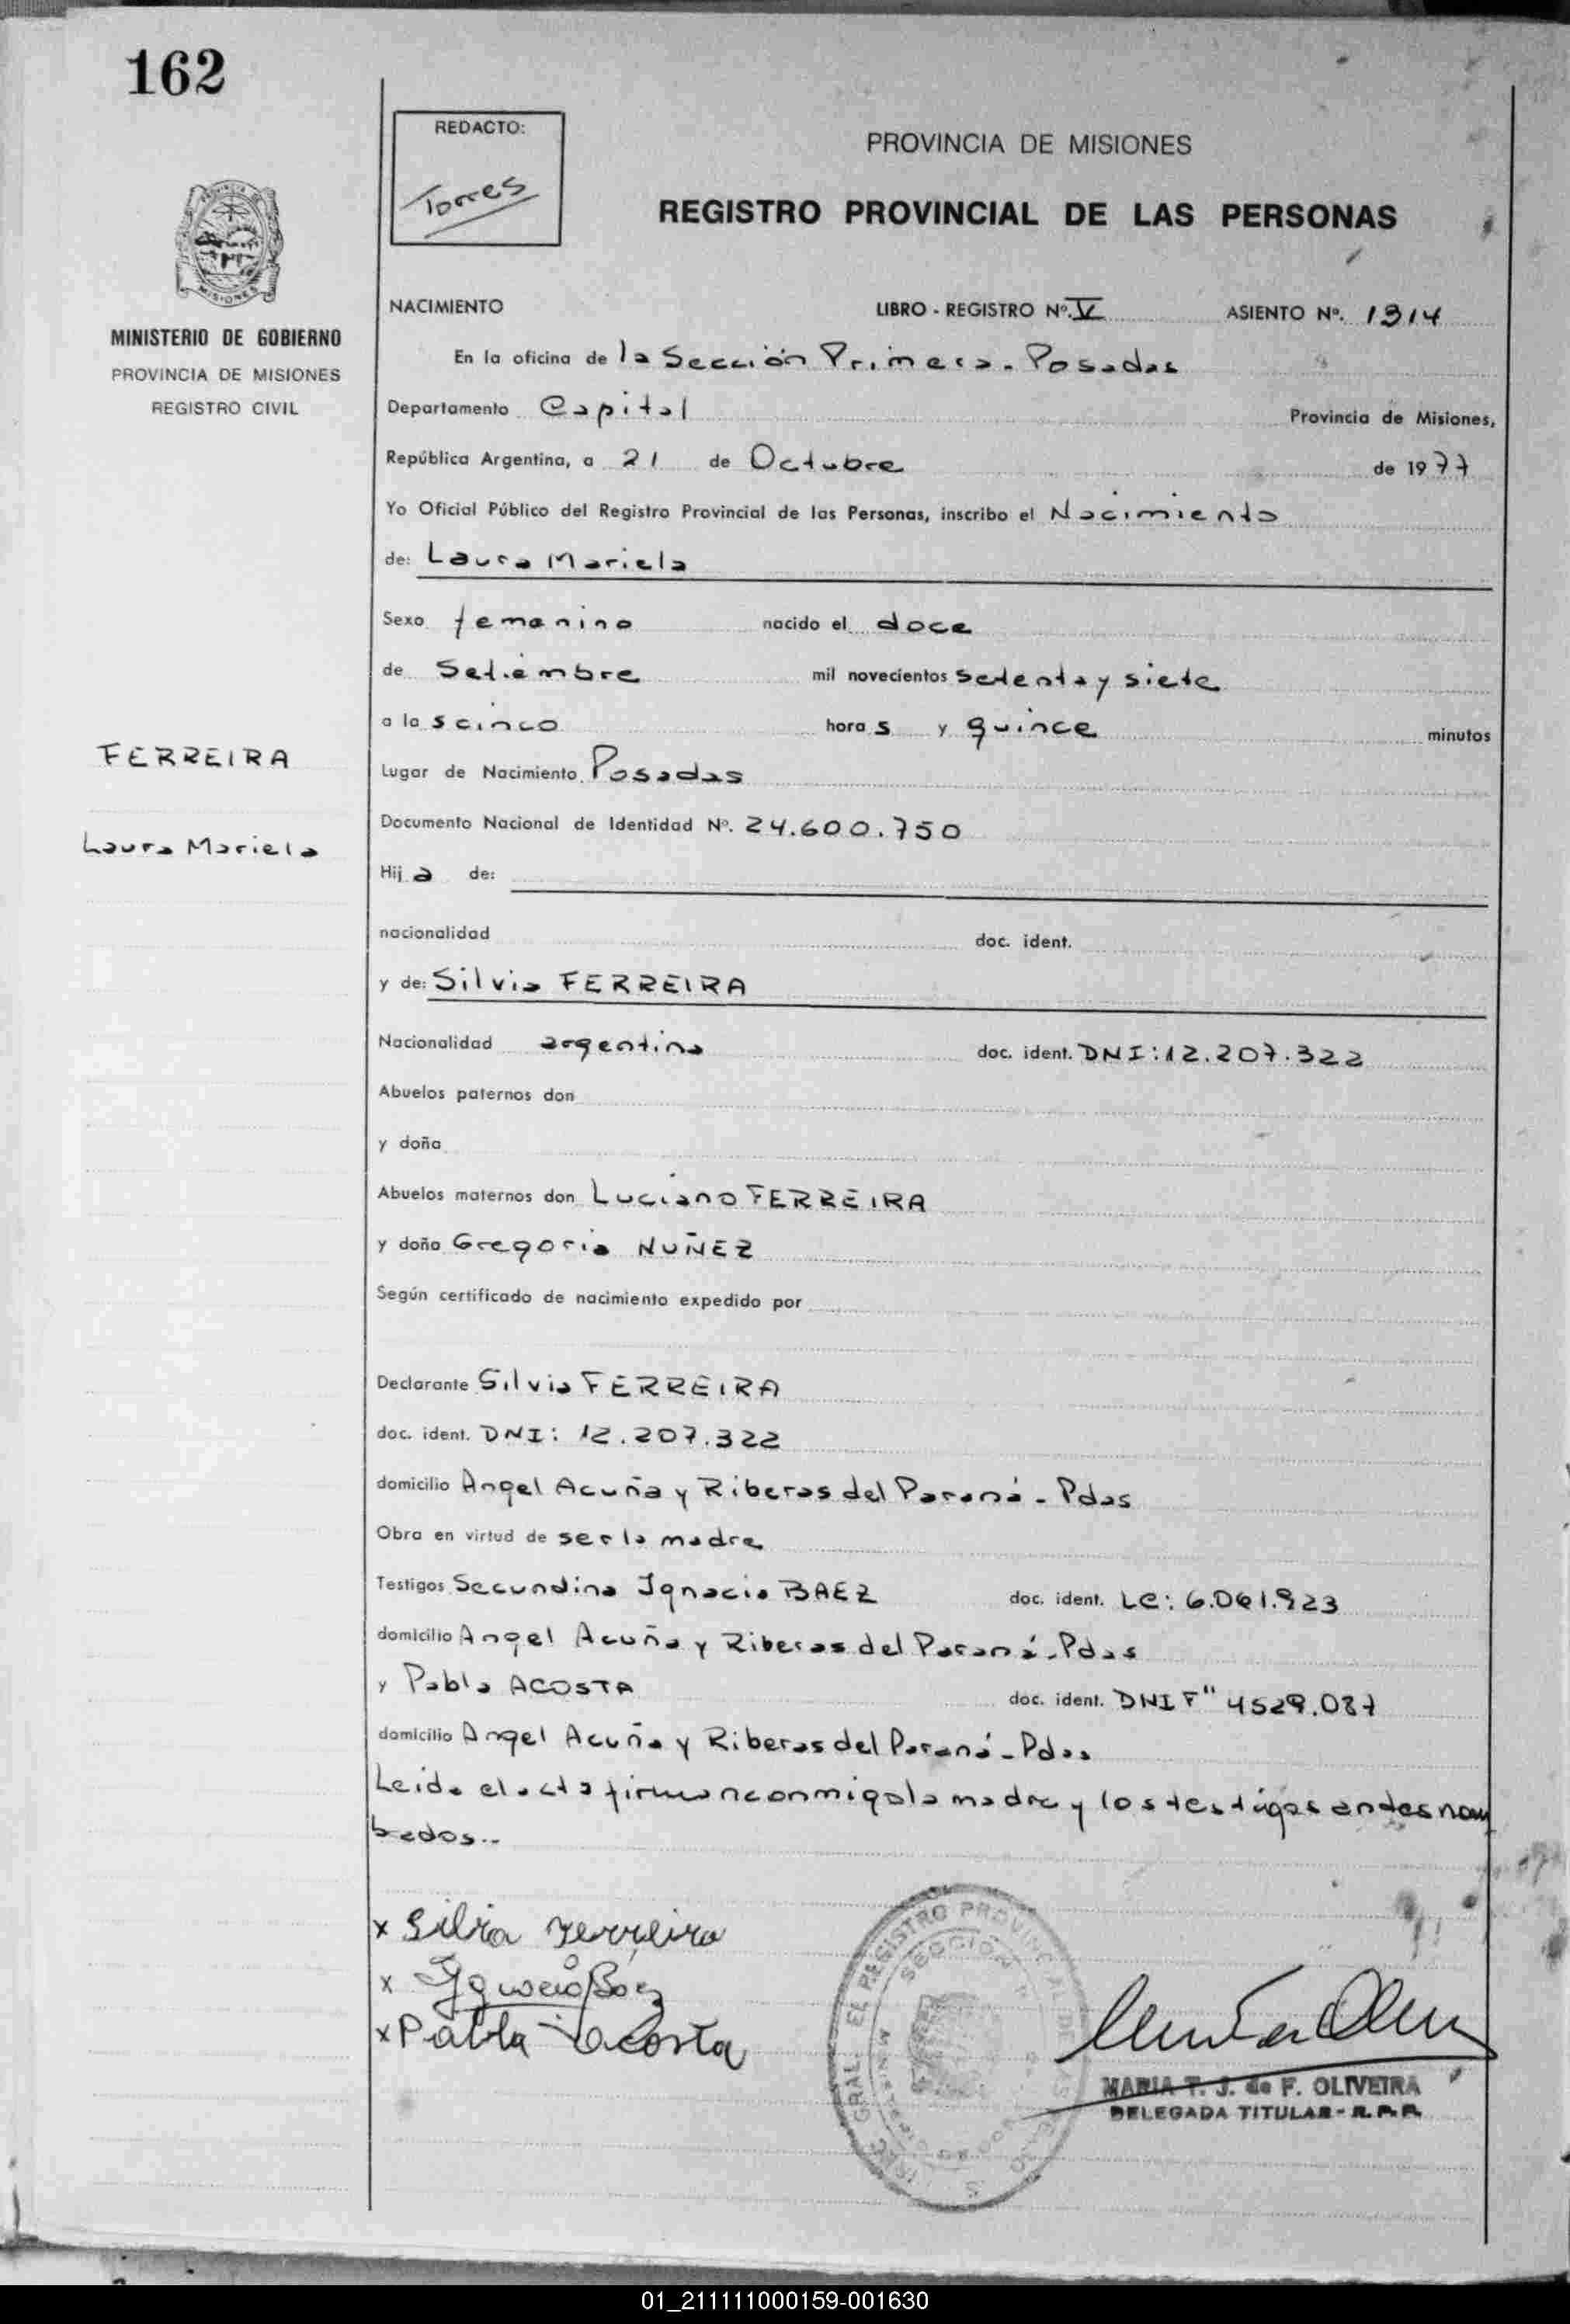 162
REDACTO:
Torres
PROVINCIA DE MISIONES
REGISTRO PROVINCIAL DE LAS PERSONAS
MISIONES
MINISTERIO DE GOBIERNO
PROVINCIA DE MISIONES
REGISTRO CIVIL
NACIMIENTO LIBRO - REGISTRO Nº. V ASIENTO Nº. 1314
En la oficina de la Sección Primera - Posadas
Departamento Capital Provincia de Misiones,
República Argentina, a 21 de Octubre de 1977
Yo Oficial Público del Registro Provincial de las Personas, inscribo el Nacimiento
de: Laura Mariela
Sexo femenino nacido el doce
de Setiembre mil novecientos setenta y siete
a las cinco horas y quince minutos
FERREIRA
Laura Mariela
Lugar de Nacimiento Posadas
Documento Nacional de Identidad Nº. 24.600.750
Hija de:
nacionalidad doc. ident.
y de: Silvia FERREIRA
Nacionalidad argentina doc. ident. DNI: 12.207.322
Abuelos paternos don
y doña
Abuelos maternos don Luciano FERREIRA
y doña Gregoria NUÑEZ
Según certificado de nacimiento expedido por
Declarante Silvia FERREIRA
doc. ident. DNI: 12.207.322
domicilio Angel Acuña y Riberas del Paraná - Pdas
Obra en virtud de ser la madre
Testigos Secundina Ignacia BAEZ doc. ident. LC: 6.061.923
domicilio Angel Acuña y Riberas del Paraná - Pdas
y Pabla ACOSTA doc. ident. DNI F" 4529.087
domicilio Angel Acuña y Riberas del Paraná - Pdas
Leida el acta firman conmigo la madre y los testigos antes nom
brados..
x Silvia Ferreira
x Ignacia Báez
x Pabla Acosta
MARIA T. J. de F. OLIVEIRA
DELEGADA TITULAR - R.P.P.
01_211111000159-001630